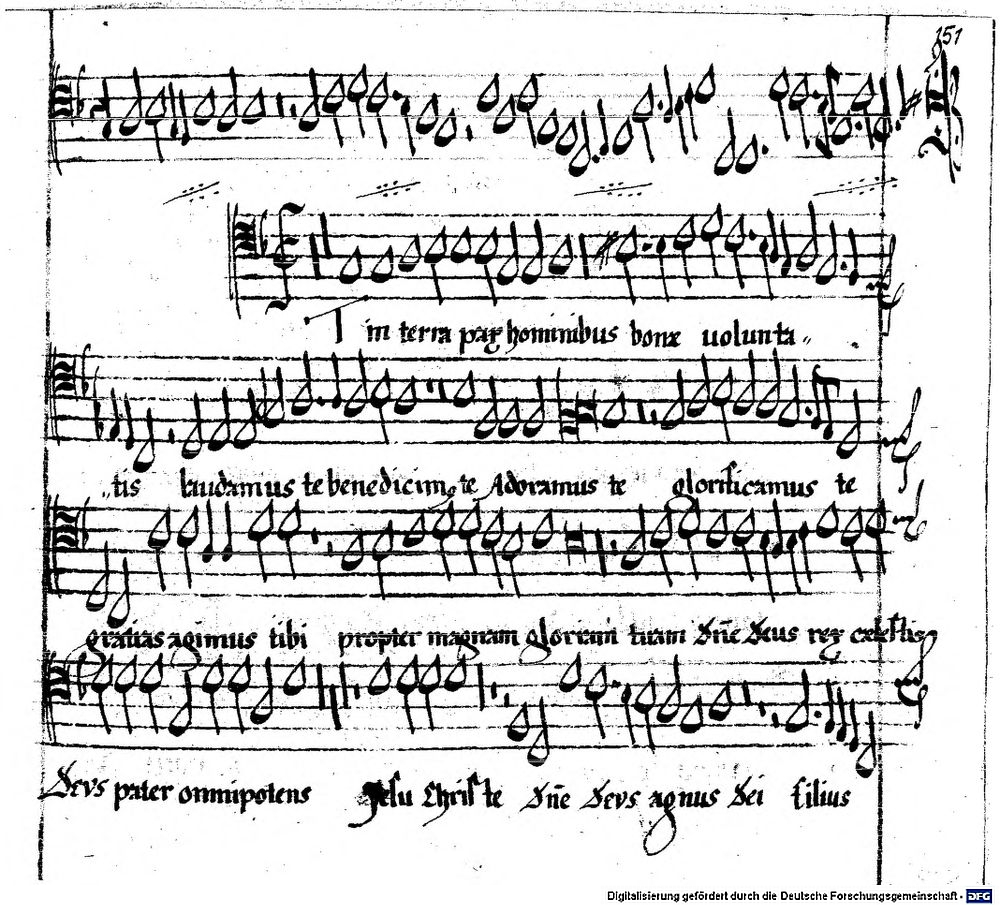 151
Et in terra pax hominibus bonæ uolunta„
„tis laudamus te benedicim9 te Adoramus te glorificamus te
gratias agimus tibi propter magnam gloriam tuam Dñe Deus rex cælestis
Deus pater omnipotens Jesu Christe Dñe Deus agnus Dei filius
Digitalisierung gefördert durch die Deutsche Forschungsgemeinschaft - DFG